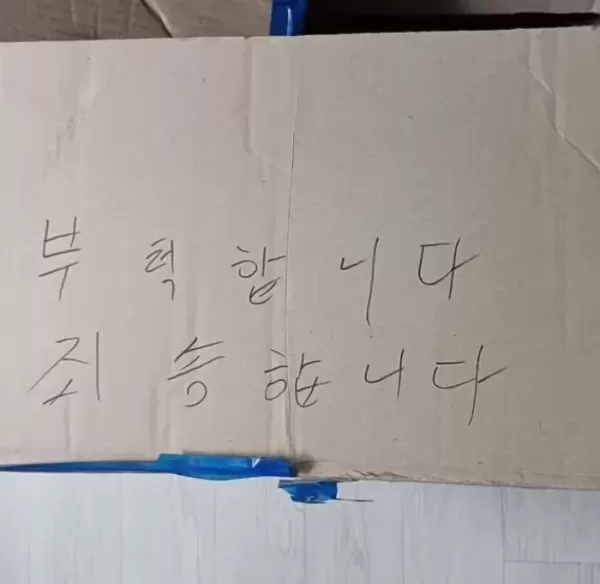 부턱합니다
죄송합니다